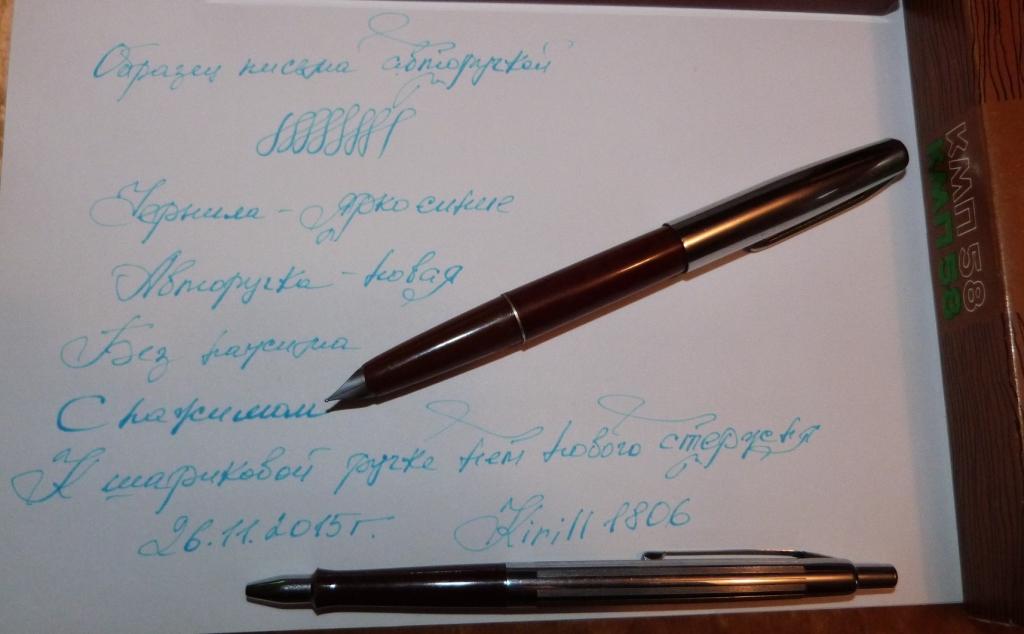 Образец письма авторучкой
Чернила - яркосиние
Авторучка - новая
Без нажима
С нажимом
К шариковой ручке нет нового стержня
26.11.2015г. Kirill1806
КМП 58
КМП 58